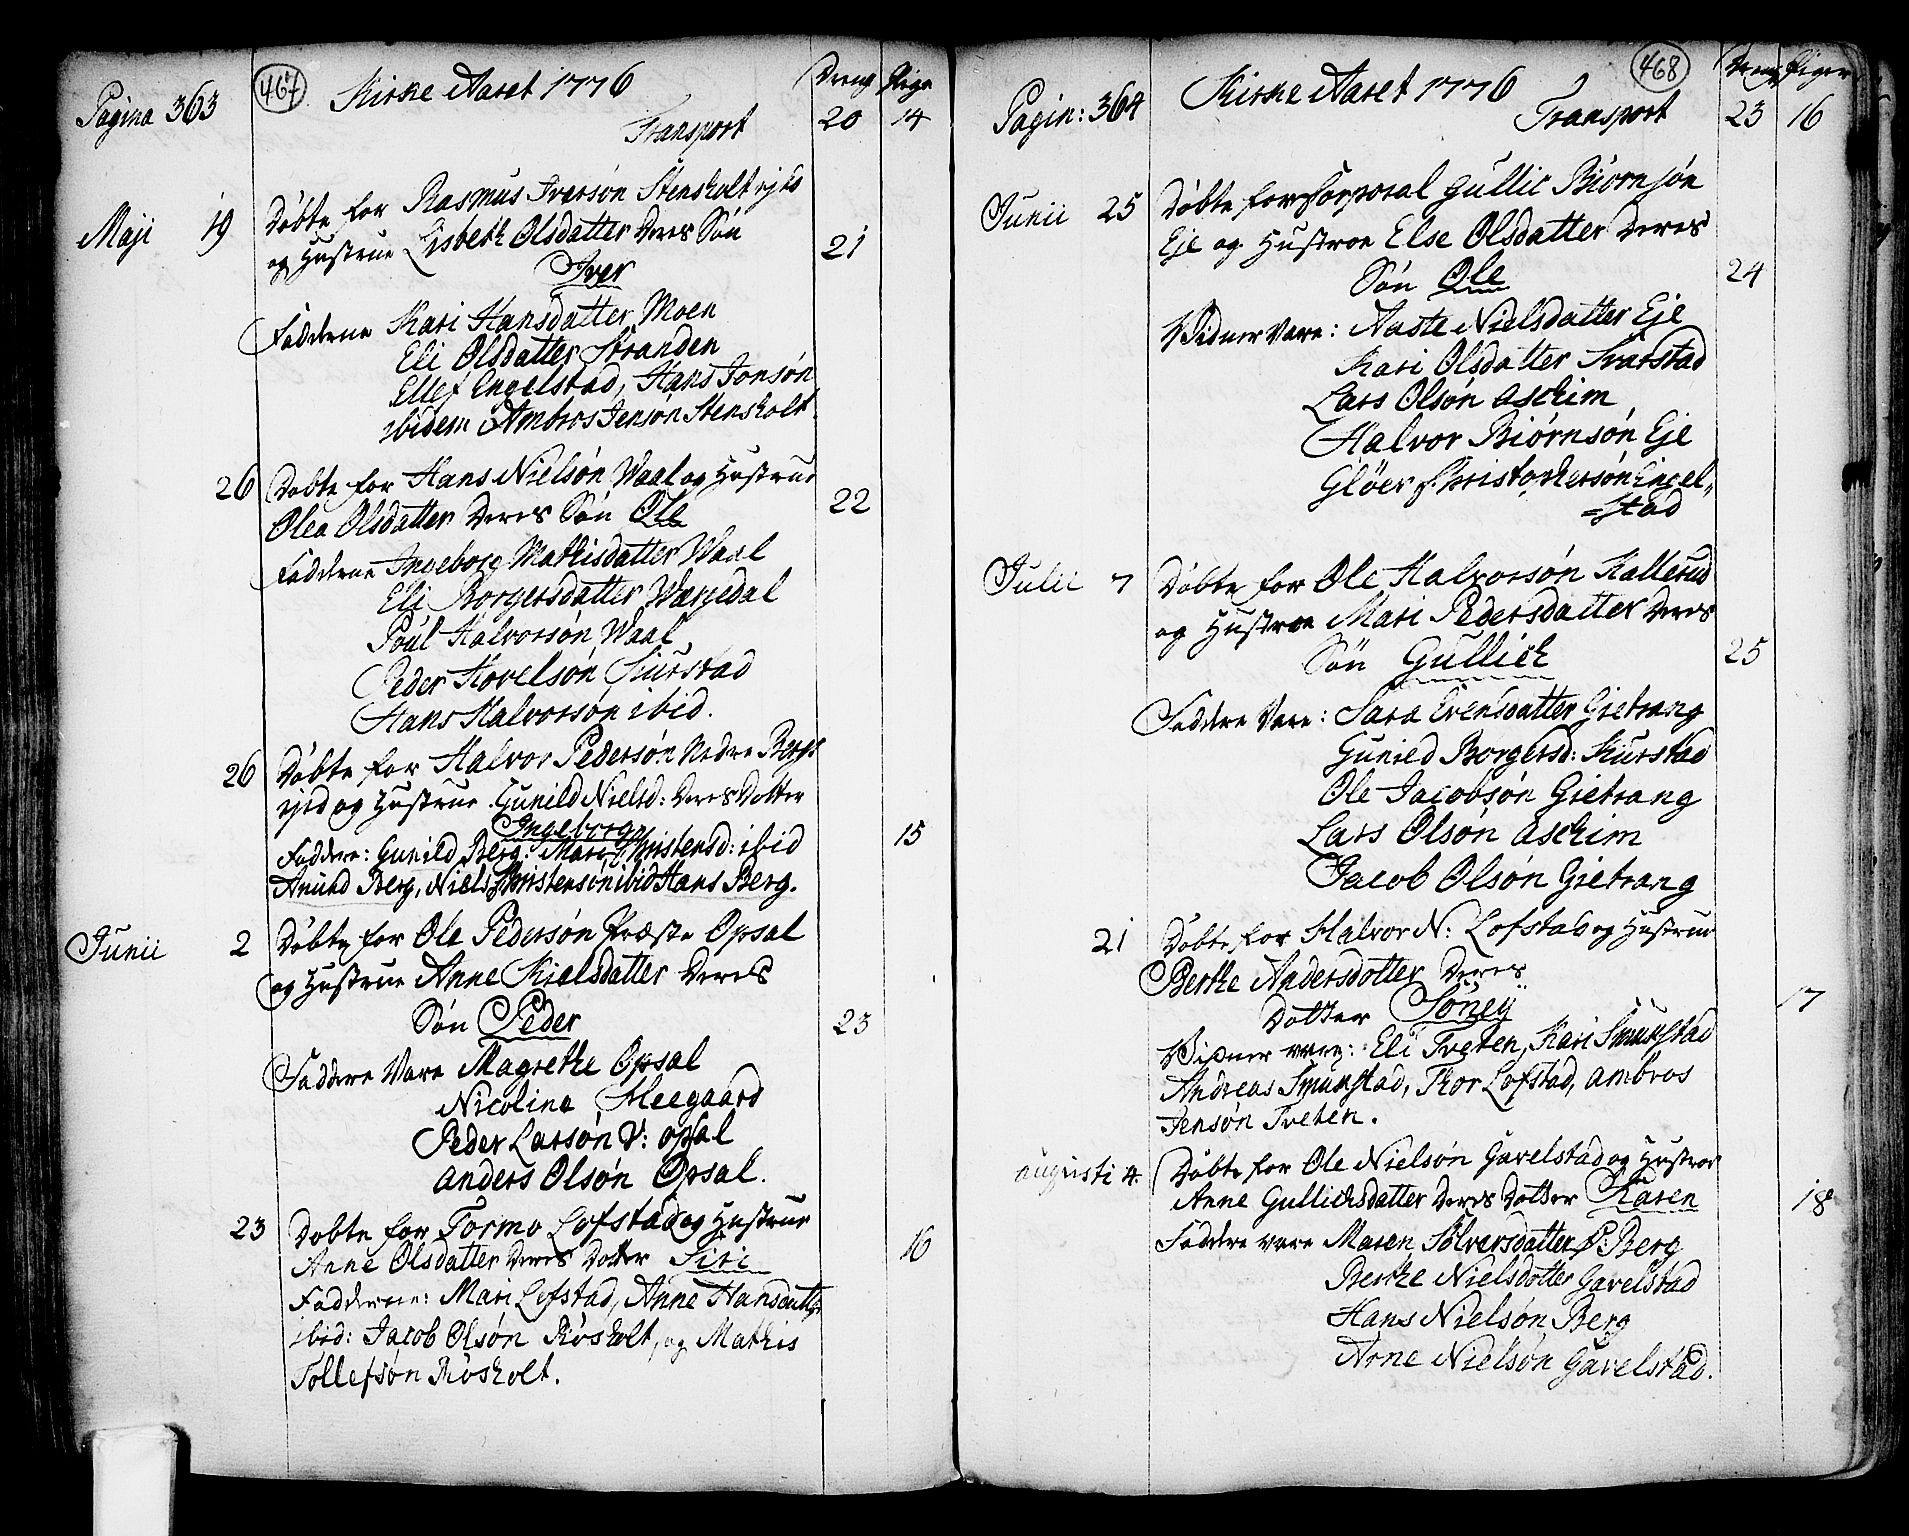 Pagina 363
467
Kirke Aaret 1776
Dreng Pige
Transport 20 14
Maji 19 Døbte for Rasmus Iversøn Stensholt
og Hustrue Lisbeth Olsdatter Deres Søn 21
Iver
Fadderne Kari Hansdatter Moen
Eli Olsdatter Stranden
Ellef Engelstad, Hans Jonsøn
ibidem Ambros Jensøn Stensholt.
26 Døbte for Hans Nielsøn Waal og Hustrue
Olea Olsdatter Deres Søn Ole 22
Fadderne Ingeborg Mathisdatter Waal
Eli Borgersdatter Wærjedal
Poul Halvorsøn Waal
Peder Hovelsøn Kurstad
Hans Halvorsøn ibid.
26 Døbte for Halvor Pedersøn Nedre Bergs
ejed og Hustrue Gunild Nielsd: Deres Dotter
Ingeborg 15
Faddere: Gunild Berg: Mari Christensd: ibid
Amund Berg, Niels Christensøn ibid Hans Berg.
Junii 2 Døbte for Ole Pedersøn Præste Opsal
og Hustrue Anne Kielsdatter Deres
Søn Peder 23
Faddere Vare Magrethe Opsal
Nicoline Kleegaard
Peder Larsøn V: Opsal
Anders Olsøn Opsal.
23 Døbte for Tormo Lofstad og Hustrue
Anne Olsdatter Deres Dotter Siri 16
Fadderne: Mari Lofstad, Anne Hansdatter
ibid: Jacob Olsøn Røsholt, og Mathis
Tollefsøn Røsholt.
Pagin: 364
468
Kirke Aaret 1776
Dreng Piger
Transport 23 16
Junii 25 Døbte for Corporal Gullic Biørnsøn
Eje og Hustroe Else Olsdatter Deres
Søn Ole 24
Vidner Vare: Aaste Nielsdatter Eje
Kari Olsdatter Svarstad
Lars Olsøn Aschim
Halvor Biørnsøn Eje
Gløer Christophersøn Engel„
=stad
Julii 7 Døbte for Ole Halvorsøn Hallerud
og Hustroe Mari Pedersdatter Deres
Søn Gullich 25
Faddere Vare: Sara Evensdatter Gietrang
Gunild Borgersd: Kurstad
Ole Jacobsøn Gietrang
Lars Olsøn Aschim
Jacob Olsøn Gietrang
21 Døbte for Halvor N: Lofstad og Hustrue
Berthe Andersdotter Deres
Dotter Søney 17
Vidner vare: Eli Tveten, Kari Smukstad
Andreas Smukstad, Thor Lofstad, Ambros
Jensøn Tveten.
augusti 4. Døbte for Ole Nielsøn Gavelstad og Hustroe
Anne Gullichsdatter Deres Dotter Karen 18
Faddere vare Maren Sølversdatter Ø: Berg
Berthe Nielsdotter Gavelstad
Hans Nielsøn Berg
Arne Nielsøn Gavelstad.